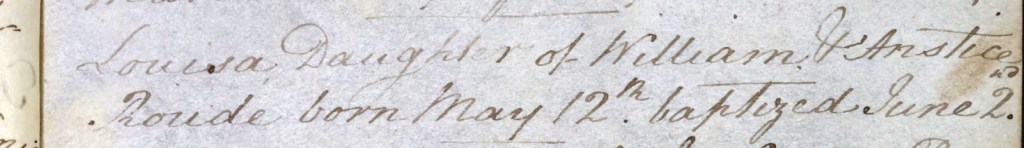 Louisa Daughter of William & Anstice
Roude born May 12th. baptized June 2nd.